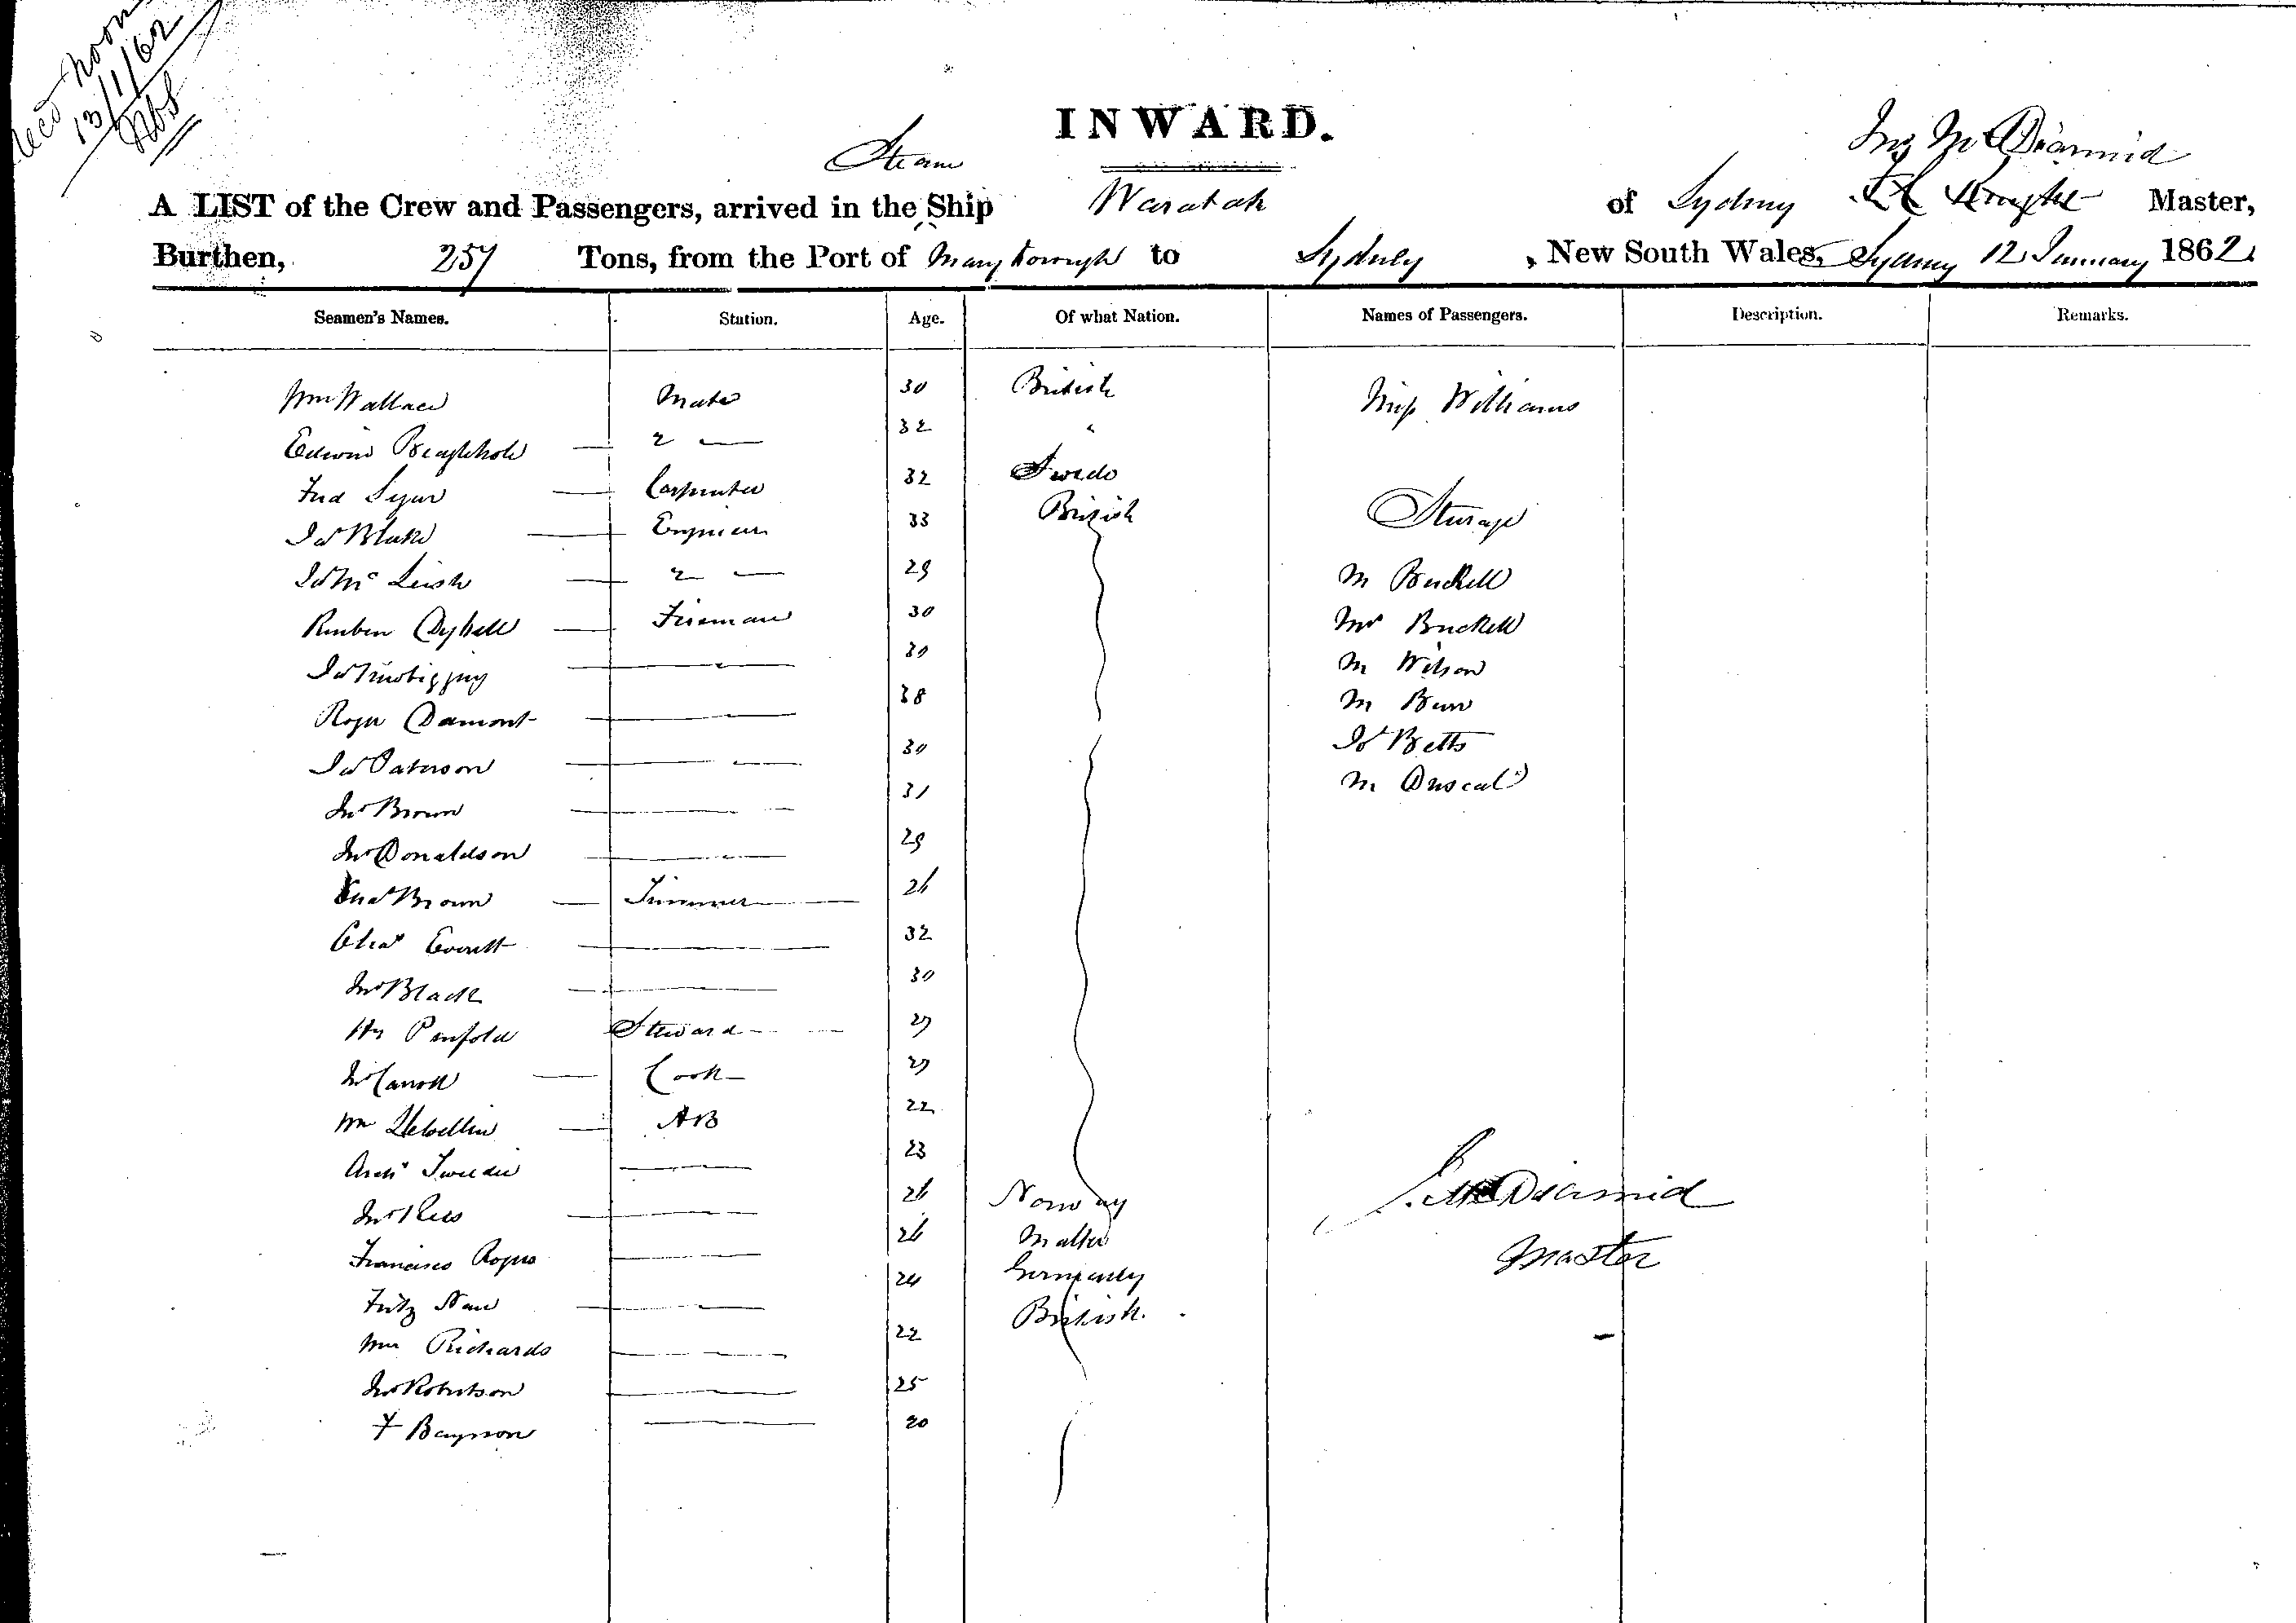 Recd Noon
13/1/62
INWARD.
Steam
Jno McDiarmid
A LIST of the Crew and Passengers, arrived in the Ship Waratah of Sydney Master,
Burthen, 257 Tons, from the Port of Maryborough to Sydney, New South Wales, Sydney 12 January 1862
Seamen's Names. Station. Age. Of what Nation. Names of Passengers. Description. Remarks.
Wm Wallace Mate 30 British Miss Williams
Edwin 2 — 32 "
Fred Carpenter 32 Swede
Jas Blake Engineer 33 British Steerage
Jas Mc Leish 2 — 29 M Buckell
Reuben Dyball Fireman 30 Mrs Buckell
Jas 30 M Wilson
Roger Damont 38 M
Jas Paterson 30 Jos Betts
Jno Brown 31 M Driscal
Jno Donaldson 29
Brown Trimmer 26
Chas Everett 32
Jno Black 30
Hy Penfold Steward 27
Jno Carroll Cook 27
Wm Llewellin AB 22
Archd Tweedie 23
Jno 26 Norway J. McDiarmid
Francisco 26 Malta Master
Fritz Nau 24 Germany
Wm Richards 22 British.
Jno Robertson 25
20